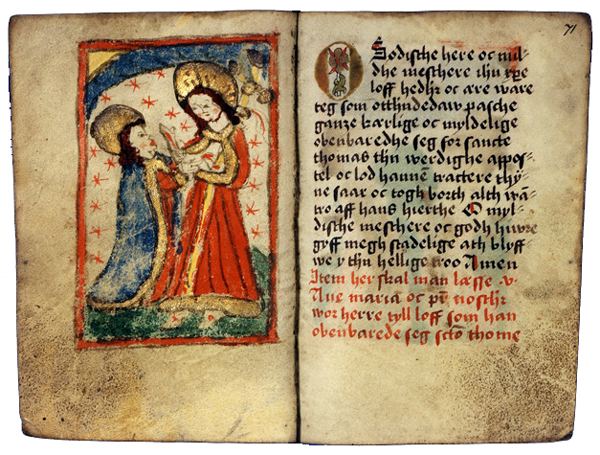 71
O Sødiste here oc mil-
dhe mesthere ihu xpe
loff hedhr oc ære ware
teg som otthndedaw pasche
ganze kærlige oc myldelige
obenbaredhe seg for sancte
thomas thn werdighe appos-
tel oc lod hannem tractere thy-
ne saar oc togh borth alth wā-
tro aff hans hierthe O myl-
disthe mesthere oc godh hiwre
gyff megh stadelige ath blyff
we y thn hellige troo Amen
Item her skal man læsse v
Aue maria oc pr nosthr
wor herre tyll loff som han
obenbarede seg scto thome